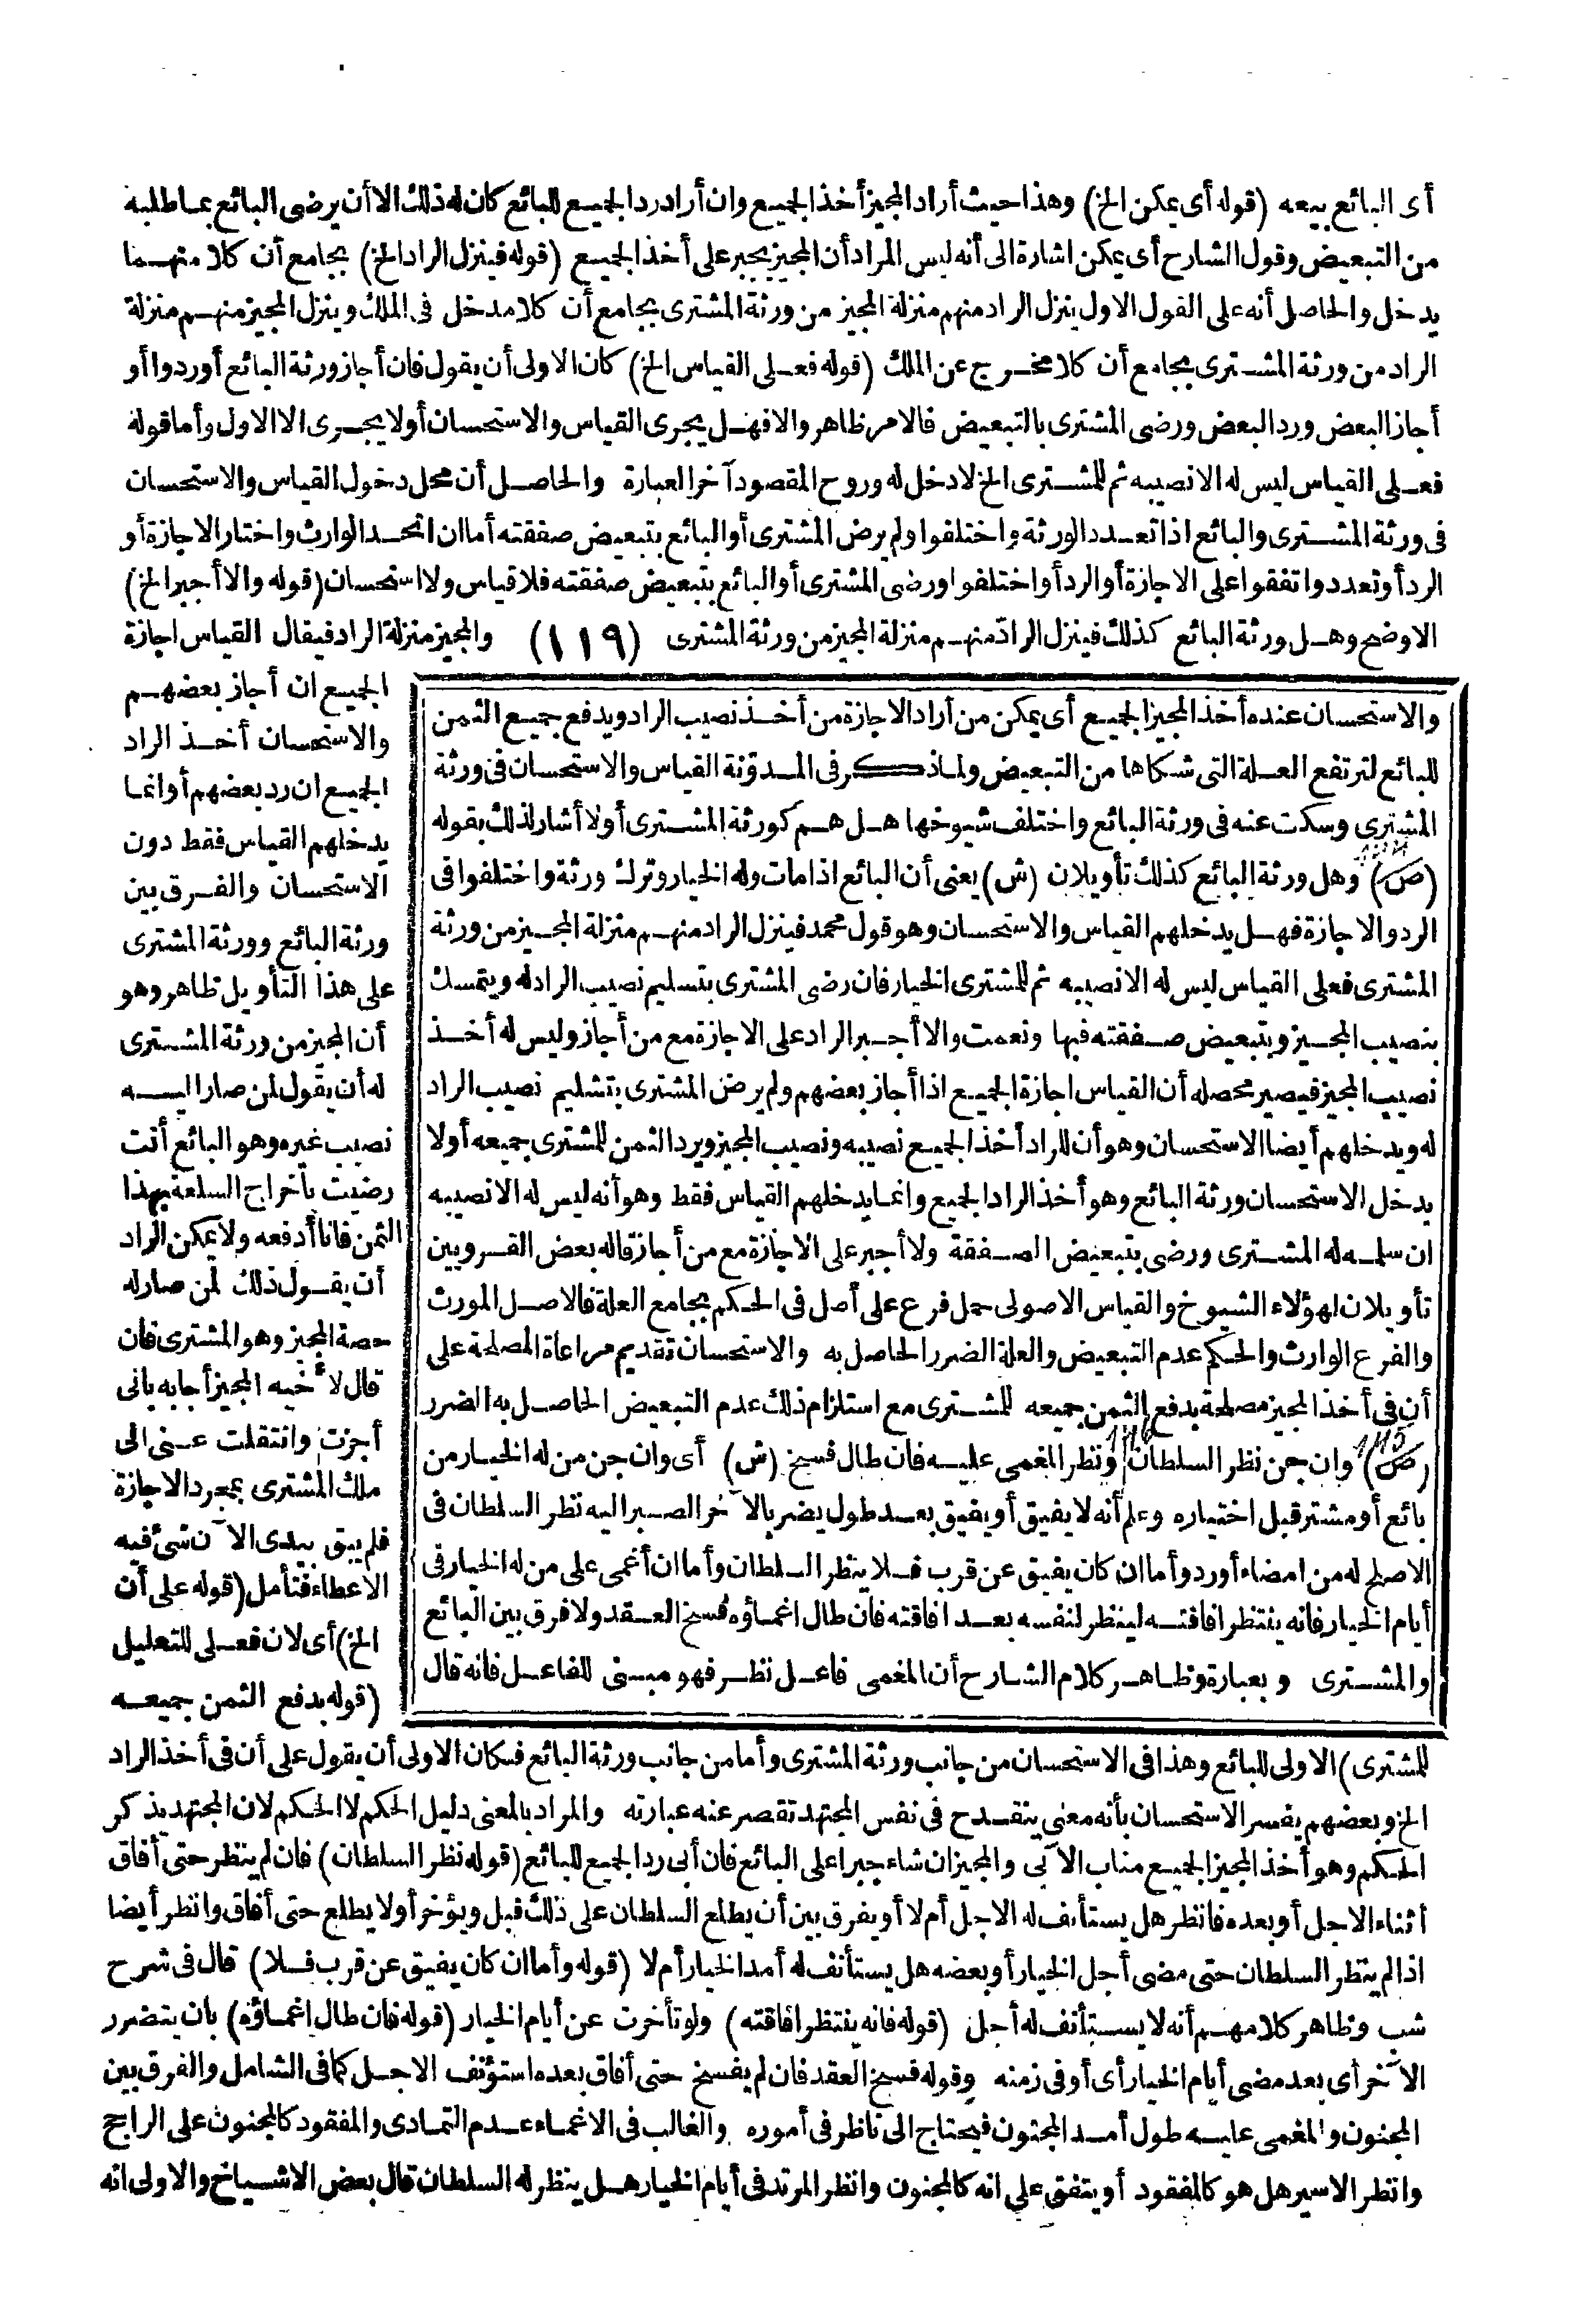 أى البائع بيعه (قوله أى يمكن الخ) وهذا حيث أراد المجيز أخذ الجميع وان أراد رد الجميع للبائع كان له ذلك الا أن يرضى البائع بما طلبه
من التبعيض وقول الشارح أى يمكن اشارة الى أنه ليس المراد أن المجيز يجبر على أخذ الجميع (قوله فينزل الراد الخ) بجامع أن كلا منهما
يدخل والحاصل أنه على القول الاول ينزل الراد منهم منزلة المجيز من ورثة المشترى بجامع أن كلا مدخل فى الملك وينزل المجيز منهم منزلة
الراد من ورثة المشترى بجامع أن كلا مخرج عن الملك (قوله فعلى القياس الخ) كان الاولى أن يقول فان أجاز ورثة البائع أو ردوا أو
أجاز البعض ورد البعض ورضى المشترى بالتبعيض فالامر ظاهر والا فهل يجرى القياس والاستحسان أولا يجرى الا الاول وأما قوله
فعلى القياس ليس له الا نصيبه ثم للمشترى الخ لا دخل له وروح المقصود آخر العبارة والحاصل أن محل دخول القياس والاستحسان
فى ورثة المشترى والبائع اذا تعدد الورثة واختلفوا ولم يرض المشترى أو البائع بتبعيض صفقته أما ان اتحد الوارث واختار الاجازة أو
الرد أو تعددوا تفقوا على الاجازة أو الرد أو اختلفوا ورضى المشترى أو البائع بتبعيض صفقته فلا قياس ولا استحسان (قوله والا أجبر الخ)
الاوضح وهل ورثة البائع كذلك فينزل الراد منهم منزلة المجيز من ورثة المشترى (١١٩) والمجيز منزلة الراد فيقال القياس اجازة
الجميع ان أجاز بعضهم
والاستحسان أخذ الراد
الجميع ان رد بعضهم أو انما
يدخلهم القياس فقط دون
الاستحسان والفرق بين
ورثة البائع وورثة المشترى
على هذا التأويل ظاهر وهو
أن المجيز من ورثة المشترى
له أن يقول لمن صار اليه
نصيب غيره وهو البائع أنت
رضيت باخراج السلعة بهذا
الثمن فانا أدفعه ولا يمكن الراد
أن يقول ذلك لمن صار له
حصة المجيز وهو المشترى فان
قال لاخيه المجيز أجابه بانى
أجزت وانتقلت عنى الى
ملك المشترى بمجرد الاجازة
فلم يبق بيدى الآن شئ فيه
الاعطاء فتأمل (قوله على أن
الخ) أى لان فعلى للتعليل
(قوله بدفع الثمن جميعه
والاستحسان عنده أخذ المجيز الجميع أى يمكن من أراد الاجازة من أخذ نصيب الراد ويدفع جميع الثمن
للبائع لترتفع العلة التى شكاها من التبعيض ولما ذكر فى المدوّنة القياس والاستحسان فى ورثة
المشترى وسكت عنه فى ورثة البائع واختلف شيوخها هل هم كورثة المشترى أولا أشار لذلك بقوله
(ص) وهل ورثة البائع كذلك تأويلان (ش) يعنى أن البائع اذا مات وله الخيار وترك ورثة واختلفوا فى
الرد والاجازة فهل يدخلهم القياس والاستحسان وهو قول محمد فينزل الراد منهم منزلة المجيز من ورثة
المشترى فعلى القياس ليس له الا نصيبه ثم للمشترى الخيار فان رضى المشترى بتسليم نصيب الراد له ويتمسك
بنصيب المجيز وبتبعيض صفقته فبها ونعمت والا أجبر الراد على الاجازة مع من أجاز وليس له أخذ
نصيب المجيز فيصير محصله أن القياس اجازة الجميع اذا أجاز بعضهم ولم يرض المشترى بتسليم نصيب الراد
له ويدخلهم أيضا الاستحسان وهو أن للراد أخذ الجميع نصيبه ونصيب المجيز ويرد الثمن للمشترى بجميعه أولا
يدخل الاستحسان ورثة البائع وهو أخذ الراد الجميع وانما يدخلهم القياس فقط وهو أنه ليس له الا نصيبه
ان سلمه له المشترى ورضى بتبعيض الصفقة ولا أجبر على الاجازة مع من أجاز قاله بعض القرويين
تأويلان لهؤلاء الشيوخ والقياس الاصولى حمل فرع على أصل فى الحكم بجامع العلة فالاصل المورث
والفرع الوارث والحكم عدم التبعيض والعلة الضرر الحاصل به والاستحسان تقديم مراعاة المصلحة على
أن فى أخذ المجيز مصلحة بدفع الثمن جميعه للمشترى مع استلزام ذلك عدم التبعيض الحاصل به الضرر
(ص) وان جن نظر السلطان ونظر المغمى عليه فان طال فسخ (ش) أى وان جن من له الخيار من
بائع أو مشتر قبل اختياره وعلم أنه لا يفيق أو يفيق بعد طول يضر بالآخر الصبر اليه نظر السلطان فى
الاصلح له من امضاء أورد وأما ان كان يفيق عن قرب فلا ينظر السلطان وأما ان أغمى على من له الخيار فى
أيام الخيار فانه ينتظر افاقته لينظر لنفسه بعد افاقته فان طال اغماؤه فسخ العقد ولا فرق بين البائع
والمشترى وبعبارة وظاهر كلام الشارح أن المغمى فاعل نظر فهو مبنى للفاعل فانه قال
للمشترى) الاولى للبائع وهذا فى الاستحسان من جانب ورثة المشترى وأما من جانب ورثة البائع فكان الاولى أن يقول على أن فى أخذ الراد
الخ وبعضهم يفسر الاستحسان بأنه معنى ينقدح فى نفس المجتهد تقصر عنه عبارته والمراد بالمعنى دليل الحكم لا الحكم لان المجتهد يذكر
الحكم وهو أخذ المجيز الجميع مناب الآبى والمجيز ان شاء جبرا على البائع فان أبى رد الجميع للبائع (قوله نظر السلطان) فان لم ينظر حتى أفاق
أثناء الاجل أو بعده فانظر هل يستأنف له الاجل أم لا أو يفرق بين أن يطلع السلطان على ذلك قبل ويؤخر أولا يطلع حتى أفاق وانظر أيضا
اذا لم ينظر السلطان حتى مضى أجل الخيار أو بعضه هل يستأنف له أمد الخيار أم لا (قوله وأما ان كان يفيق عن قرب فلا) قال فى شرح
شب وظاهر كلامهم أنه لا يستأنف له أجل (قوله فانه ينتظر افاقته) ولو تأخرت عن أيام الخيار (قوله فان طال اغماؤه) بان يتضرر
الآخر أى بعد مضى أيام الخيار أى أو فى زمنه وقوله فسخ العقد فان لم يفسخ حتى أفاق بعده استؤنف الاجل كما فى الشامل والفرق بين
المجنون والمغمى عليه طول أمد المجنون فيحتاج الى ناظر فى أموره والغالب فى الاغماء عدم التمادى والمفقود كالمجنون على الراجح
وانظر الاسير هل هو كالمفقود أو يتفق على انه كالمجنون وانظر المرتد فى أيام الخيار هل ينظر له السلطان قال بعض الاشياخ والاولى انه